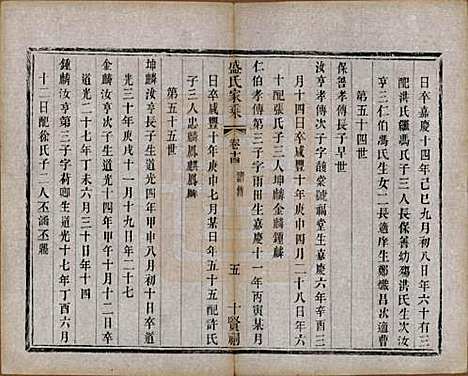 日卒嘉慶十四年己巳九月初八日年六十有三
配洪氏繼馮氏子三人長保善幼殤洪氏生次汝
亨三仁伯馮氏生女二長適庠生鄭 昌次適曹
第五十四世
保善孝傳長子早世
汝亨孝傳次子字 梁號福堂生嘉慶六年辛酉三
月十四日卒咸豐十年庚申四月二十八日年六
十配張氏子三人坤麟金麟鍾麟
仁伯孝傳第三子字雨田生嘉慶十一年丙寅某月
日卒咸豐十年庚申七月某日年五十五配許氏
子三人忠麟鳳麒鳳麟
盛氏家乘
卷十四
五
十賢祠
第五十五世
坤麟汝亨長子生道光四年甲申八月十三日卒道
光三十年庚戌十一月十九日年二十七
金麟汝亨次子生道光十四年甲午十月十二日卒
道光二十七年丁未六月三十日年十四
鍾麟汝亨第三子字荷卿生道光十七年丁酉六月
十二日配徐氏子二人丕 丕